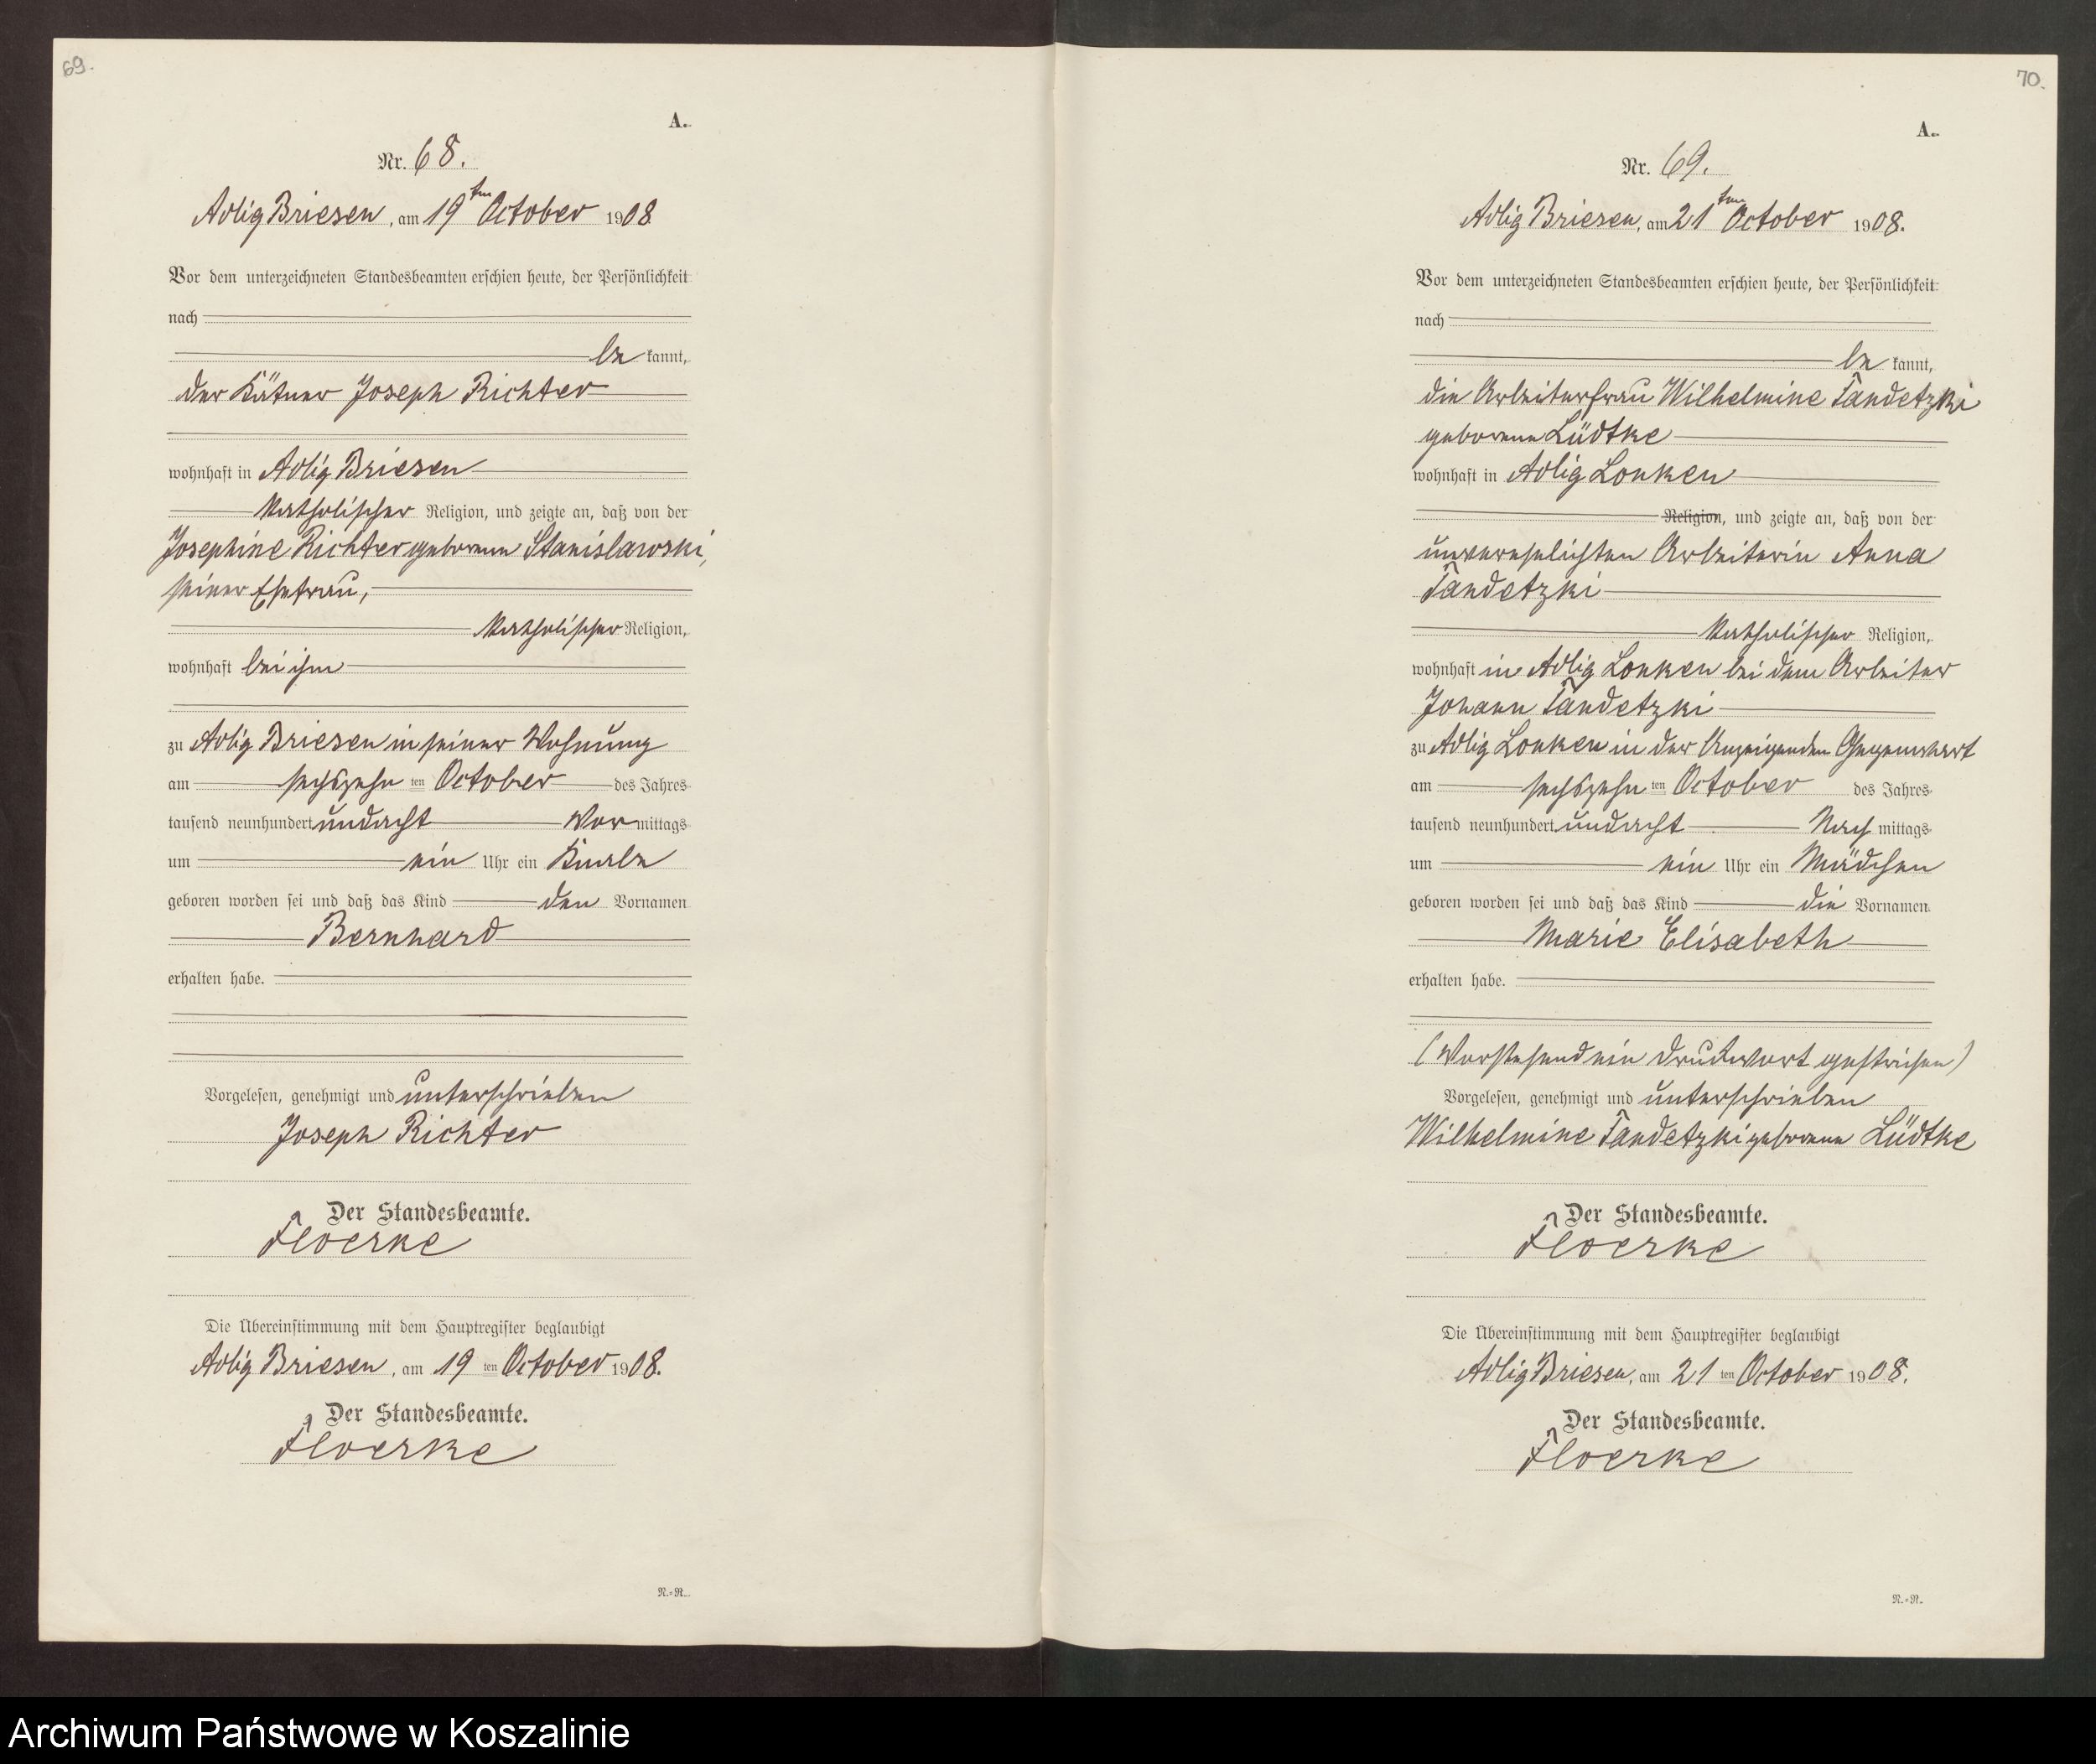 69.
A.
Nr. 68.
Adlig Briesen, am 19ten October 1908.
Vor dem unterzeichneten Standesbeamten erschien heute, der Persönlichkeit
nach
be kannt,
der Kätner Joseph Richter
wohnhaft in Adlig Briesen
katholischer Religion, und zeigte an, daß von der
Josephine Richter geborene Stanislawski,
seiner Ehefrau,
katholischer Religion,
wohnhaft bei ihm
zu Adlig Briesen in seiner Wohnung
am sechszehn ten October des Jahres
tausend neunhundert und acht Vor mittags
um ein Uhr ein Knabe
geboren worden sei und daß das Kind den Vornamen
Bernhard
erhalten habe.
Vorgelesen, genehmigt und unterschrieben
Joseph Richter
Der Standesbeamte.
Floerke
Die Übereinstimmung mit dem Hauptregister beglaubigt
Adlig Briesen, am 19 ten October 1908.
Der Standesbeamte.
Floerke
N.-R.
70.
A.
Nr. 69.
Adlig Briesen, am 21ten October 1908.
Vor dem unterzeichneten Standesbeamten erschien heute, der Persönlichkeit
nach
be kannt,
die Arbeiterfrau Wilhelmine Tandetzki
geborene Lüdtke
wohnhaft in Adlig Lonken
Religion, und zeigte an, daß von der
unverehelichten Arbeiterin Anna
Tandetzki
katholischer Religion,
wohnhaft in Adlig Lonken bei dem Arbeiter
Johann Tandetzki
zu Adlig Lonken in der Anzeigenden Gegenwart
am sechszehn ten October des Jahres
tausend neunhundert und acht Nach mittags
um ein Uhr ein Mädchen
geboren worden sei und daß das Kind die Vornamen
Marie Elisabeth
erhalten habe.
(Vorstehend ein Druckwort gestrichen)
Vorgelesen, genehmigt und unterschrieben
Wilhelmine Tandetzki geborene Lüdtke
Der Standesbeamte.
Floerke
Die Übereinstimmung mit dem Hauptregister beglaubigt
Adlig Briesen, am 21 ten October 1908.
Der Standesbeamte.
Floerke
N.-R.
Archiwum Państwowe w Koszalinie